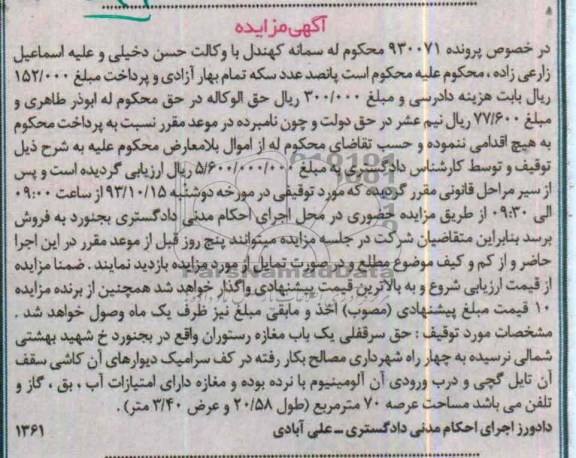 آگهی مزایده
در خصوص پرونده ۹۳۰۰۷۱ محکوم له سمانه کهندل با وکالت حسن دخیلی و علیه اسماعیل
زارعی زاده ، محکوم علیه محکوم است پانصد عدد سکه تمام بهار آزادی و پرداخت مبلغ ۱۵۲/۰۰۰
ریال بابت هزینه دادرسی و مبلغ ۳۰۰/۰۰۰ ریال حق الوکاله در حق محکوم له ابوذر طاهری و
مبلغ ۷۷/۶۰۰ ریال نیم عشر در حق دولت و چون نامبرده در موعد مقرر نسبت به پرداخت محکوم
به هیچ اقدامی ننموده و حسب تقاضای محکوم له از اموال بلامعارض محکوم علیه به شرح ذیل
توقیف و توسط کارشناس دادگستری به مبلغ ۵/۶۰۰/۰۰۰/۰۰۰ ریال ارزیابی گردیده است و پس
از سیر مراحل قانونی مقرر گردیده که مورد توقیفی در مورخه دوشنبه ۹۳/۱۰/۱۵ از ساعت ۰۹:۰۰
الی ۰۹:۳۰ از طریق مزایده حضوری در محل اجرای احکام مدنی دادگستری بجنورد به فروش
برسد بنابراین متقاضیان شرکت در جلسه مزایده میتوانند پنج روز قبل از موعد مقرر در این اجرا
حاضر و از کم و کیف موضوع مطلع و در صورت تمایل از مورد مزایده بازدید نمایند . ضمنا مزایده
از قیمت ارزیابی شروع و به بالاترین قیمت پیشنهادی واگذار خواهد شد همچنین از برنده مزایده
۱۰ قیمت مبلغ پیشنهادی (مصوب) اخذ و مابقی مبلغ نیز ظرف یک ماه وصول خواهد شد .
مشخصات مورد توقیف : حق سرقفلی یک باب مغازه رستوران واقع در بجنورد خ شهید بهشتی
شمالی نرسیده به چهار راه شهرداری مصالح بکار رفته در کف سرامیک دیوارهای آن کاشی سقف
آن تایل گچی و درب ورودی آن آلومینیوم با نرده بوده و مغازه دارای امتیازات آب ، بق ، گاز و
تلفن می باشد مساحت عرصه ۷۰ مترمربع (طول ۲۰/۵۸ و عرض ۳/۴۰ متر) .
دادورز اجرای احکام مدنی دادگستری – علی آبادی
۱۳۶۱
ParsNamadData